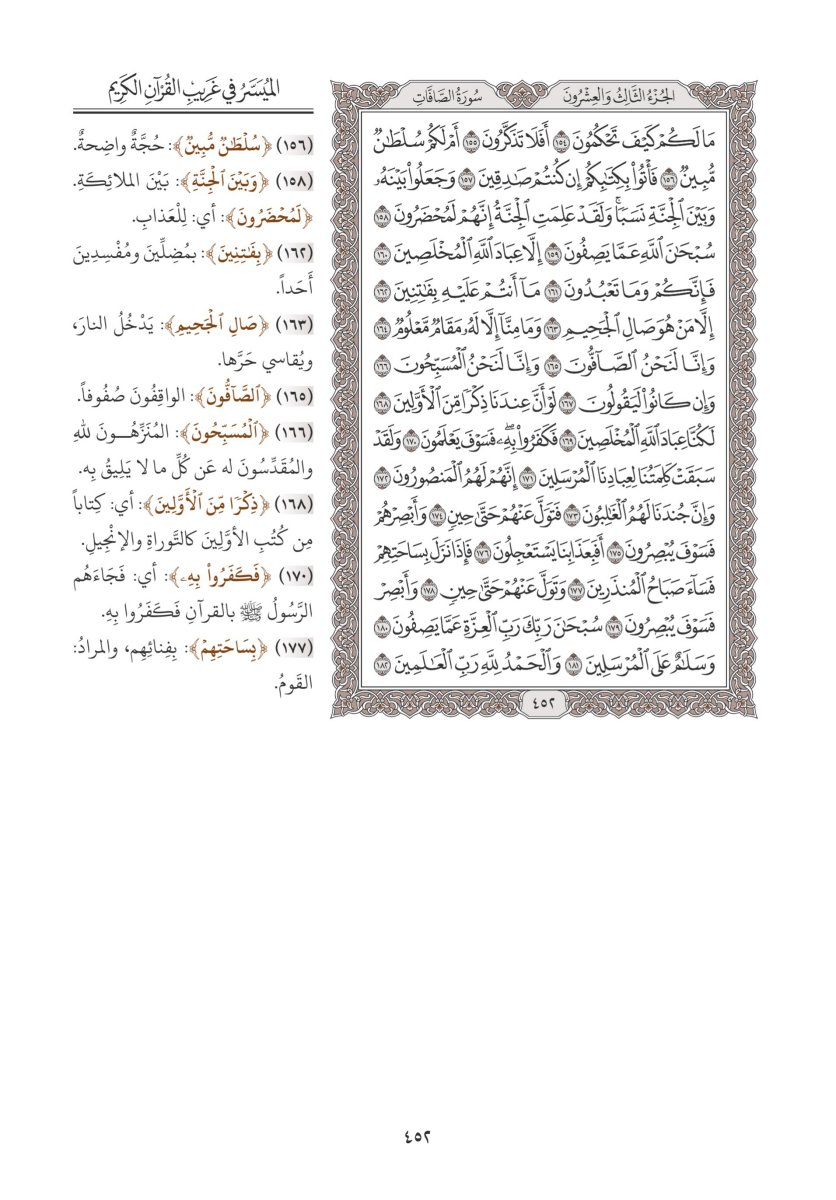 الجُزْءُ الثَّالِثُ وَالعِشْرُونَ
سُورَةُ الصَّافَّاتِ
مَا لَكُمْ كَيْفَ تَحْكُمُونَ ١٥٤ أَفَلَا تَذَكَّرُونَ ١٥٥ أَمْ لَكُمْ سُلْطَٰنٌ
مُّبِينٌ ١٥٦ فَأْتُواْ بِكِتَٰبِكُمْ إِن كُنتُمْ صَٰدِقِينَ ١٥٧ وَجَعَلُواْ بَيْنَهُۥ
وَبَيْنَ ٱلْجِنَّةِ نَسَبًاۚ وَلَقَدْ عَلِمَتِ ٱلْجِنَّةُ إِنَّهُمْ لَمُحْضَرُونَ ١٥٨
سُبْحَٰنَ ٱللَّهِ عَمَّا يَصِفُونَ ١٥٩ إِلَّا عِبَادَ ٱللَّهِ ٱلْمُخْلَصِينَ ١٦٠
فَإِنَّكُمْ وَمَا تَعْبُدُونَ ١٦١ مَآ أَنتُمْ عَلَيْهِ بِفَٰتِنِينَ ١٦٢
إِلَّا مَنْ هُوَ صَالِ ٱلْجَحِيمِ ١٦٣ وَمَا مِنَّآ إِلَّا لَهُۥ مَقَامٌ مَّعْلُومٌ ١٦٤
وَإِنَّا لَنَحْنُ ٱلصَّآفُّونَ ١٦٥ وَإِنَّا لَنَحْنُ ٱلْمُسَبِّحُونَ ١٦٦
وَإِن كَانُواْ لَيَقُولُونَ ١٦٧ لَوْ أَنَّ عِندَنَا ذِكْرًا مِّنَ ٱلْأَوَّلِينَ ١٦٨
لَكُنَّا عِبَادَ ٱللَّهِ ٱلْمُخْلَصِينَ ١٦٩ فَكَفَرُواْ بِهِۦۖ فَسَوْفَ يَعْلَمُونَ ١٧٠ وَلَقَدْ
سَبَقَتْ كَلِمَتُنَا لِعِبَادِنَا ٱلْمُرْسَلِينَ ١٧١ إِنَّهُمْ لَهُمُ ٱلْمَنصُورُونَ ١٧٢
وَإِنَّ جُندَنَا لَهُمُ ٱلْغَٰلِبُونَ ١٧٣ فَتَوَلَّ عَنْهُمْ حَتَّىٰ حِينٍ ١٧٤ وَأَبْصِرْهُمْ
فَسَوْفَ يُبْصِرُونَ ١٧٥ أَفَبِعَذَابِنَا يَسْتَعْجِلُونَ ١٧٦ فَإِذَا نَزَلَ بِسَاحَتِهِمْ
فَسَآءَ صَبَاحُ ٱلْمُنذَرِينَ ١٧٧ وَتَوَلَّ عَنْهُمْ حَتَّىٰ حِينٍ ١٧٨ وَأَبْصِرْ
فَسَوْفَ يُبْصِرُونَ ١٧٩ سُبْحَٰنَ رَبِّكَ رَبِّ ٱلْعِزَّةِ عَمَّا يَصِفُونَ ١٨٠
وَسَلَٰمٌ عَلَى ٱلْمُرْسَلِينَ ١٨١ وَٱلْحَمْدُ لِلَّهِ رَبِّ ٱلْعَٰلَمِينَ ١٨٢
٤٥٢
المُيَسَّرُ في غَرِيبِ القُرْآنِ الكَرِيمِ
(١٥٦) ﴿سُلْطَٰنٌ مُّبِينٌ﴾: حُجَّةٌ واضِحةٌ.
(١٥٨) ﴿وَبَيْنَ ٱلْجِنَّةِ﴾: بَيْنَ الملائِكَةِ.
﴿لَمُحْضَرُونَ﴾: أي: لِلْعَذابِ.
(١٦٢) ﴿بِفَٰتِنِينَ﴾: بمُضِلِّينَ ومُفْسِدِينَ
أَحَداً.
(١٦٣) ﴿صَالِ ٱلْجَحِيمِ﴾: يَدْخُلُ النارَ،
ويُقاسي حَرَّها.
(١٦٥) ﴿ٱلصَّآفُّونَ﴾: الواقِفُونَ صُفُوفاً.
(١٦٦) ﴿ٱلْمُسَبِّحُونَ﴾: المُنَزِّهُونَ للهِ
والمُقَدِّسُونَ له عَن كُلِّ ما لا يَلِيقُ بِه.
(١٦٨) ﴿ذِكْرًا مِّنَ ٱلْأَوَّلِينَ﴾: أي: كِتاباً
مِن كُتُبِ الأوَّلِينَ كالتَّوراةِ والإنْجِيلِ.
(١٧٠) ﴿فَكَفَرُواْ بِهِۦ﴾: أي: فَجَاءَهُم
الرَّسُولُ ﷺ بالقرآنِ فَكَفَرُوا بِهِ.
(١٧٧) ﴿بِسَاحَتِهِمْ﴾: بِفِنائِهِم، والمرادُ:
القَومُ.
٤٥٢